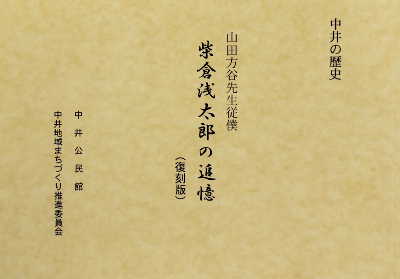 中井の歴史
山田方谷先生従僕
柴倉浅太郎の追憶
(復刻版)
中井公民館
中井地域まちづくり推進委員会